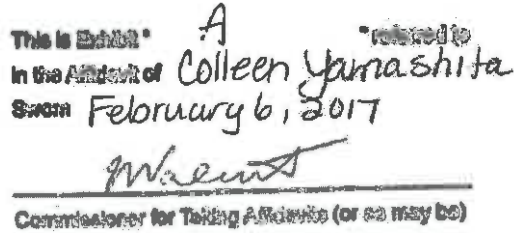 This is Exhibit " A " referred to
in the Affidavit of Colleen Yamashita
Sworn February 6, 2017
Commissioner for Taking Affidavits (or as may be)